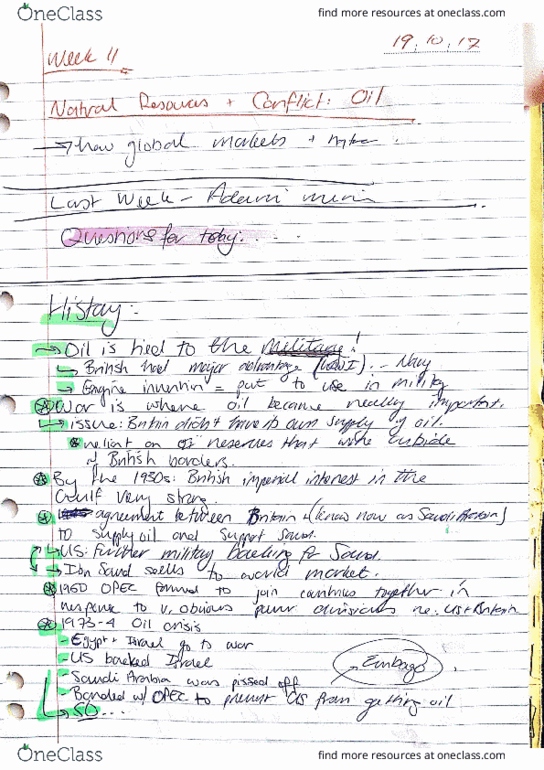 OneClass
find more resources at oneclass.com
19.10.17
Week 11
Natural Resources + Conflict: Oil
→ how global markets +
Last Week - Adani mine
Questions for today...
History:
→ Oil is tied to the military!
↳ British had major advantage (WWI). - Navy
→ Engine invention = put to use in military
War is where oil became really important.
↳ issue: Britain didn't have its own supply of oil.
reliant on oil reserves that were outside
of British borders.
By the 1930s: British imperial interest in the
Gulf very strong.
agreement between Britain + (know now as Saudi Arabia)
to supply oil and support Saud.
→ US: Further military backing for Saud.
→ Ibn Saud sells to world market.
1960 OPEC formed to join countries together in
response to v. obvious power divisions re: US + Britain
1973-4 Oil crisis
- Egypt + Israel go to war
- US backed Israel
- Saudi Arabia was pissed off
Embargo
- Banded w/ OPEC to prevent US from getting oil
↳ SO...
OneClass
find more resources at oneclass.com